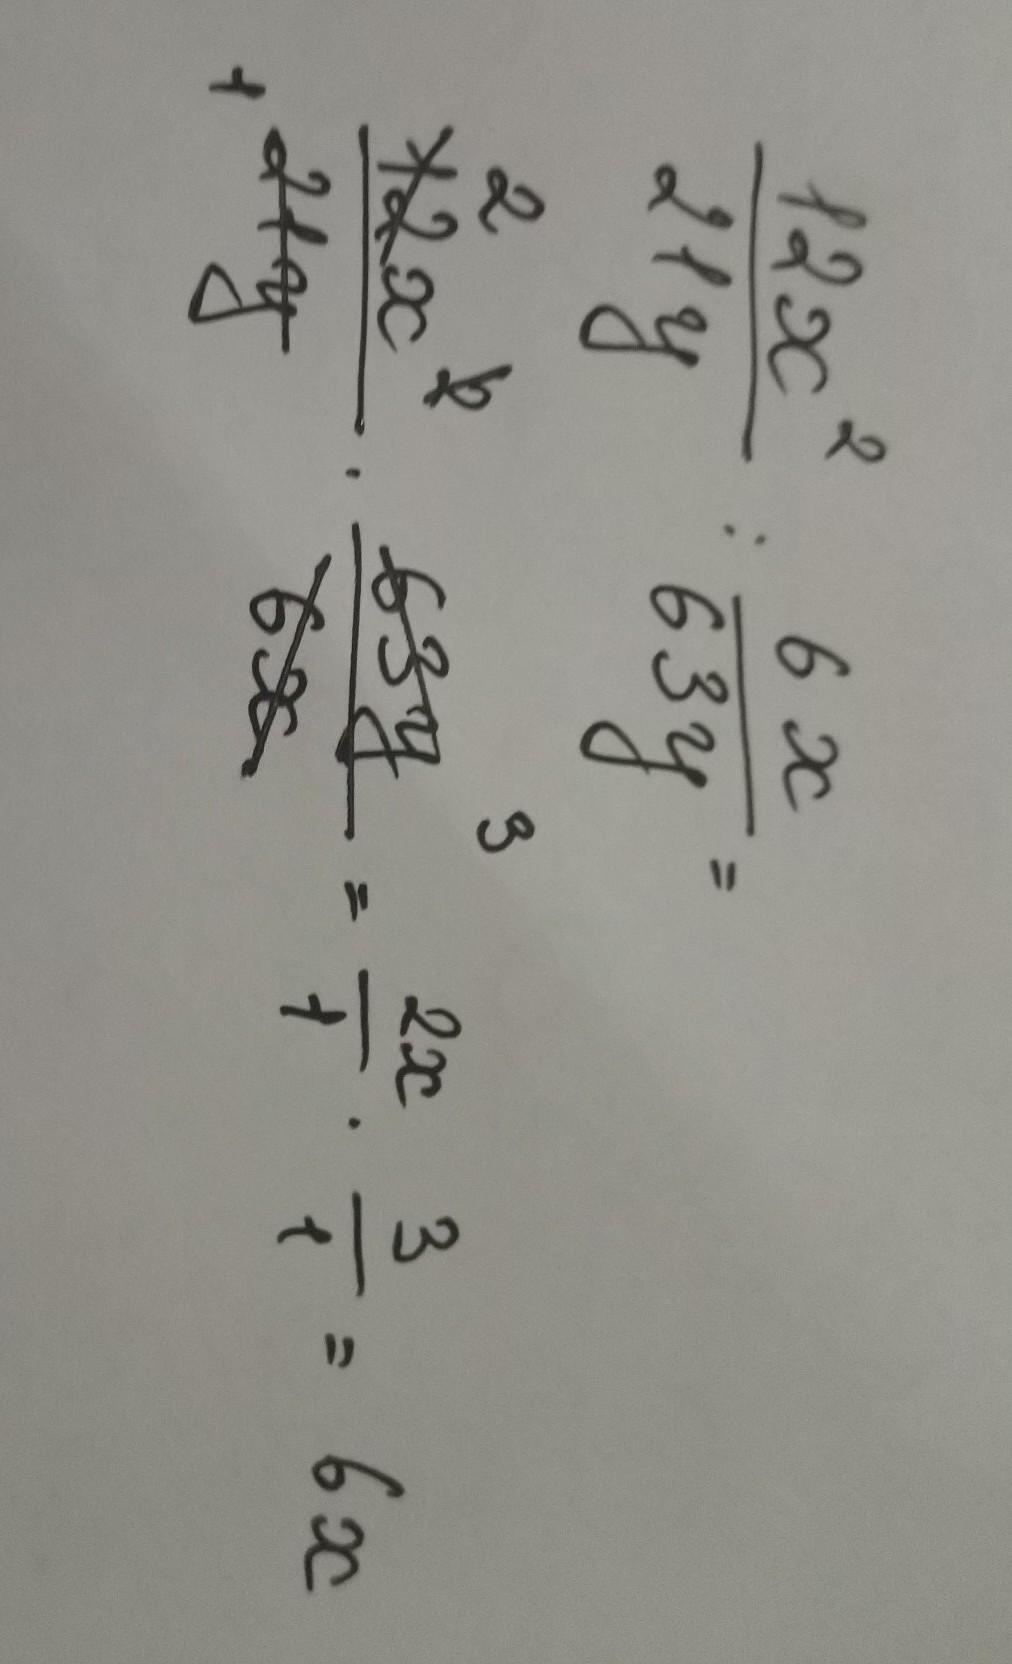 12x² / 21y : 6x / 63y =
12x² / 21y · 63y / 6x = 2x / 1 · 3 / 1 = 6x
2 3
1